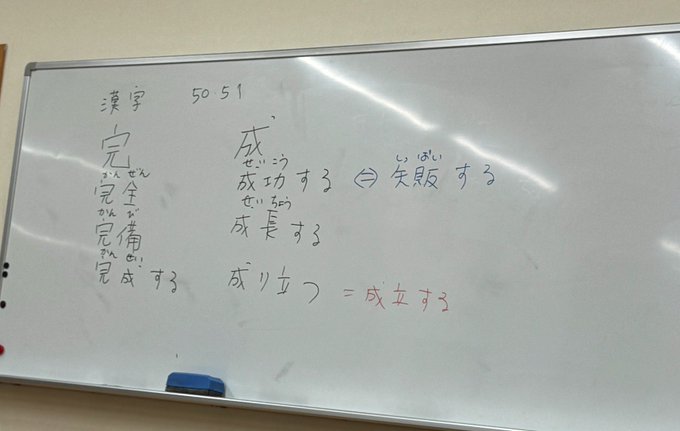 漢字 50・51
完
かんぜん
完全
かんび
完備
かんせい
完成する
成
せいこう
成功する ⇔ 矢販する
しっぱい
せいちょう
成長する
成り立つ = 成立する